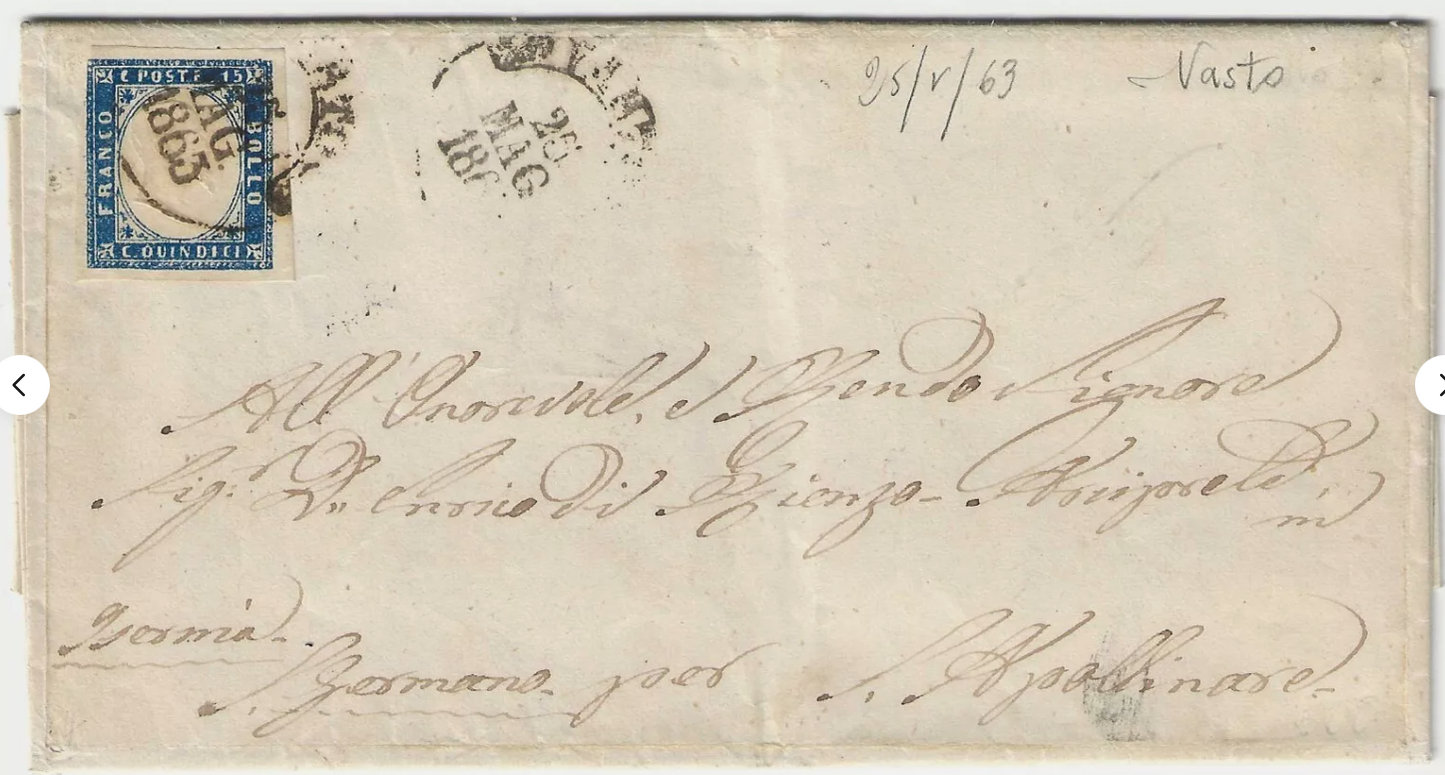 C. POSTE 15
FRANCO
BOLLO
C. QUINDICI
MAG.
1863
25
MAG
186
25/V/63
Vasto
All'Onorevole, e Signore
Sig.r D. Enrico Di Rienzo
Isernia
S. Germano per S. Apollinare